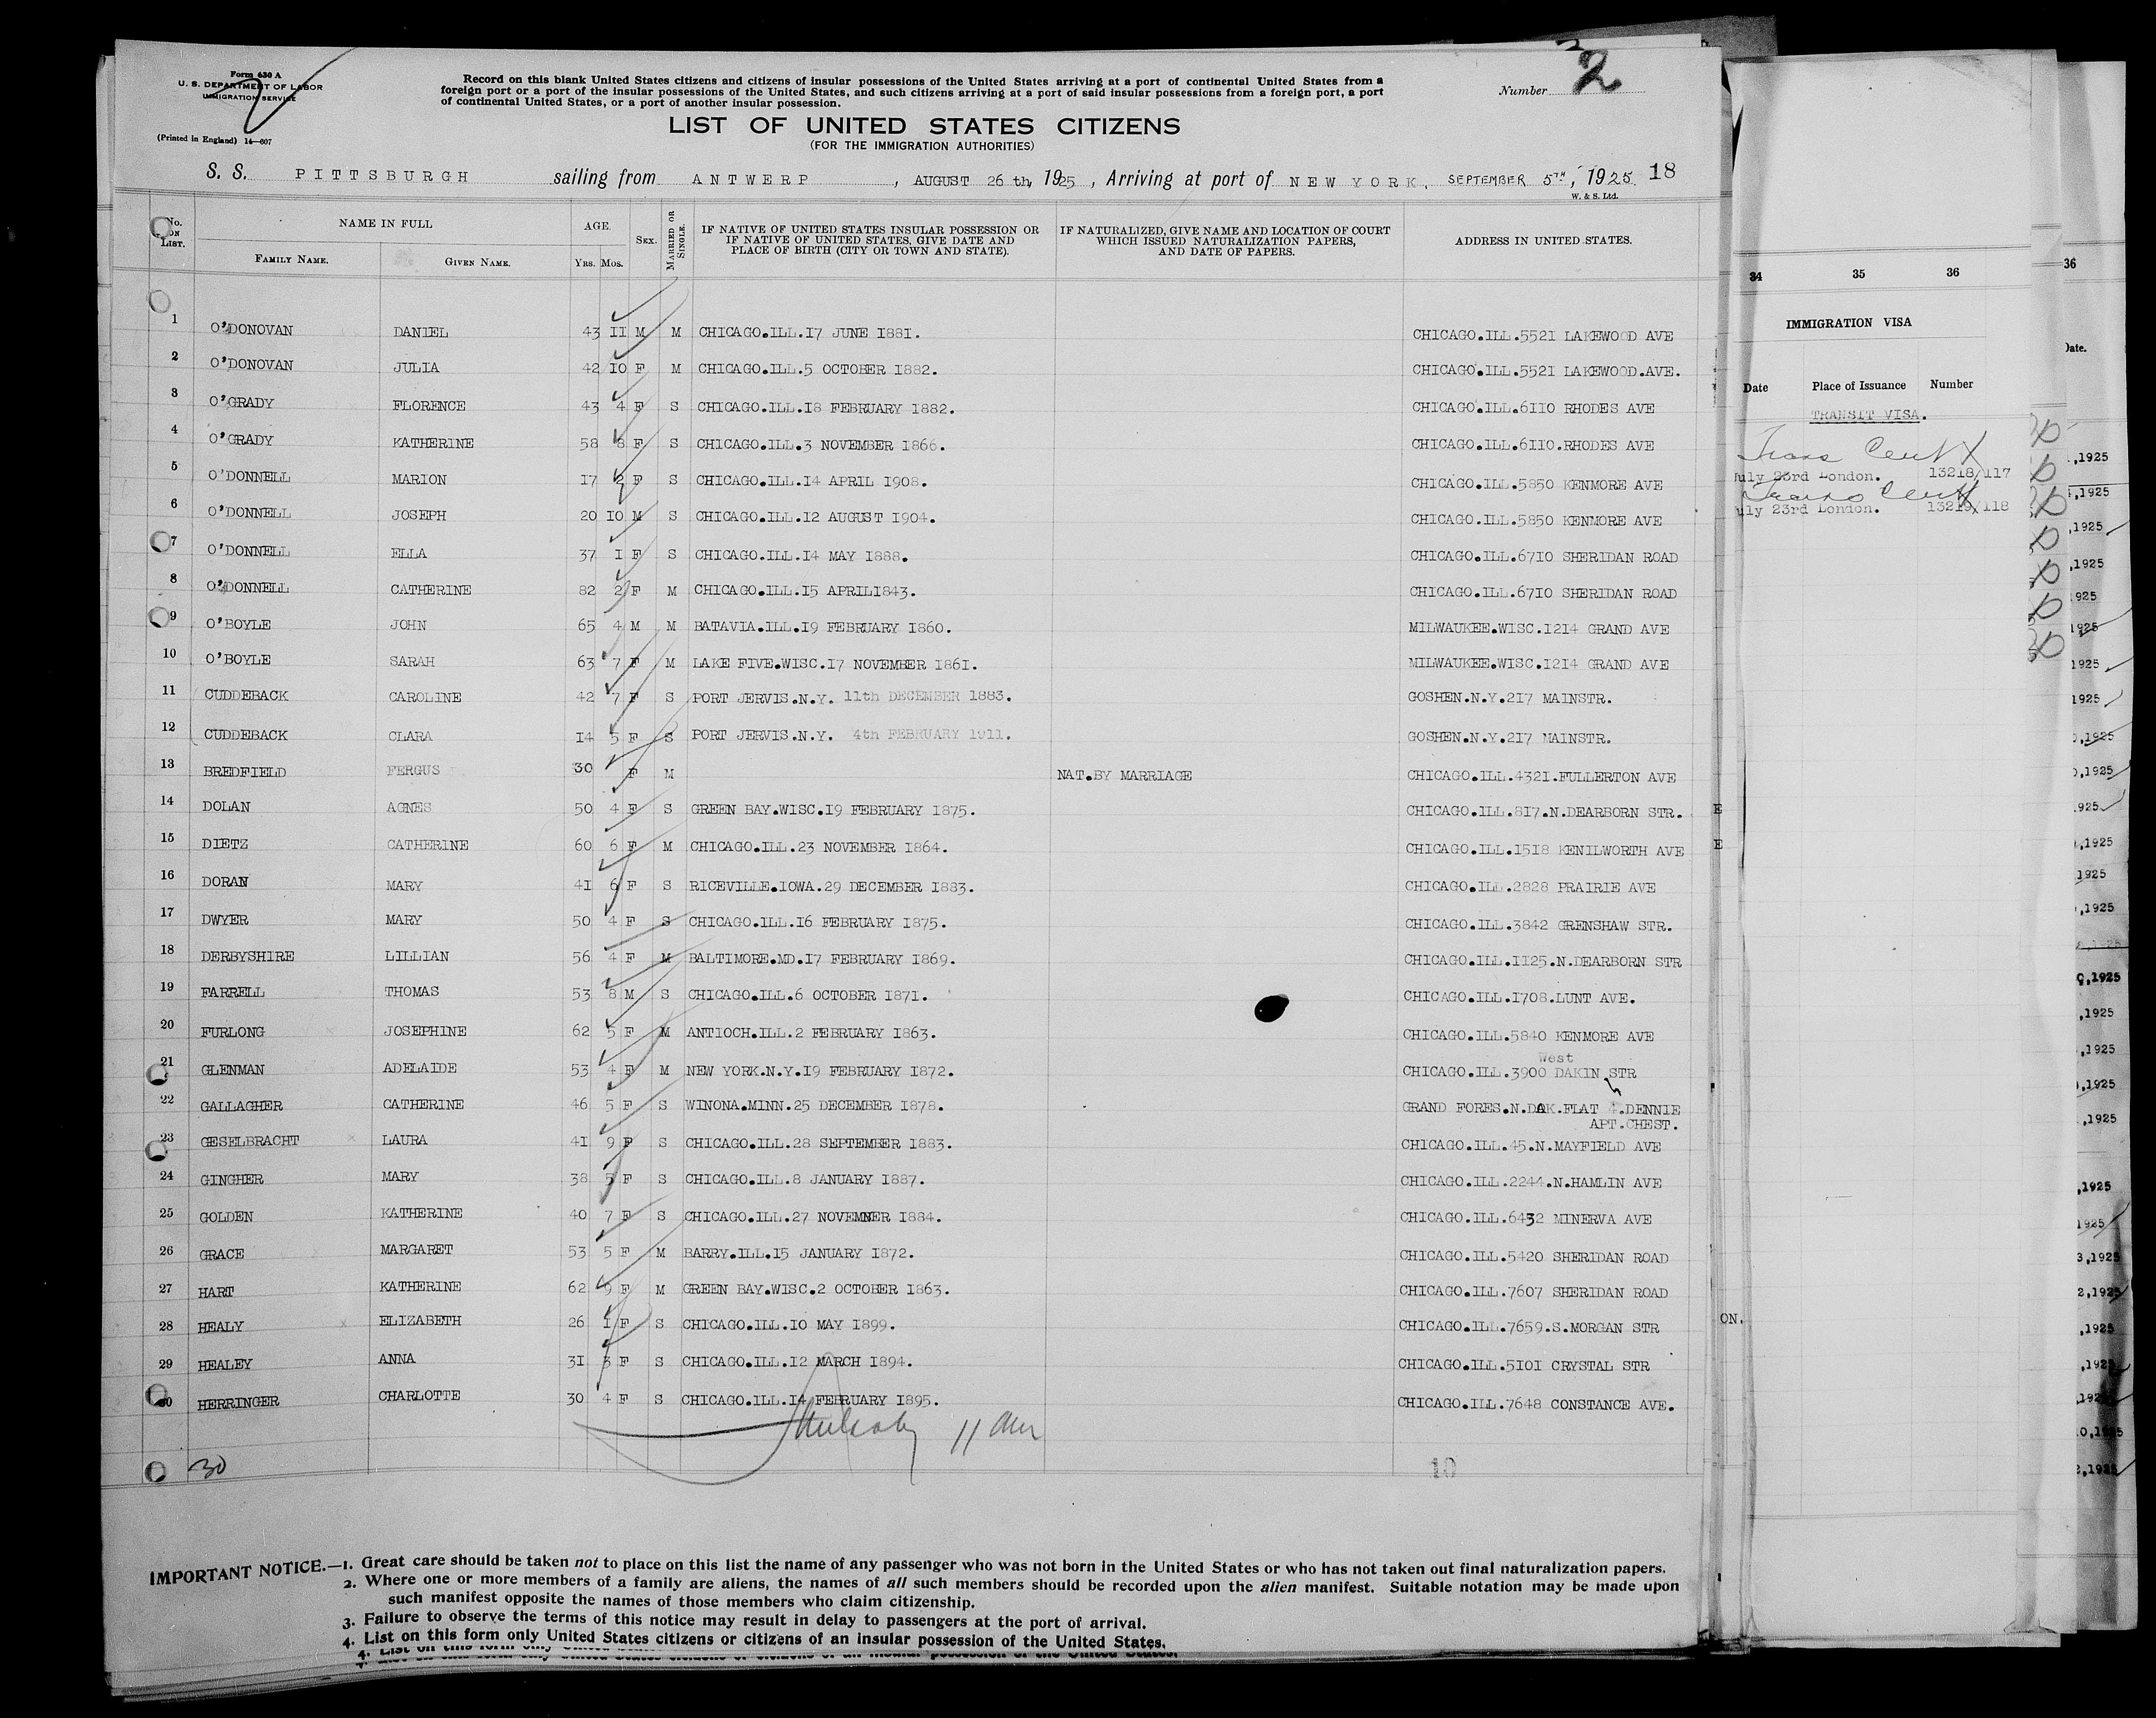 Form 630 A
U. S. DEPARTMENT OF LABOR
IMMIGRATION SERVICE
(Printed in England) 14—607
Record on this blank United States citizens and citizens of insular possessions of the United States arriving at a port of continental United States from a
foreign port or a port of the insular possessions of the United States, and such citizens arriving at a port of said insular possessions from a foreign port, a port
of continental United States, or a port of another insular possession.
Number 2
LIST OF UNITED STATES CITIZENS
(FOR THE IMMIGRATION AUTHORITIES)
S. S. PITTSBURGH sailing from ANTWERP, AUGUST 26 th, 1925, Arriving at port of NEW YORK, SEPTEMBER 5TH, 1925. 18
W. & S. Ltd.
No. ON LIST. NAME IN FULL AGE. SEX. MARRIED OR SINGLE. IF NATIVE OF UNITED STATES INSULAR POSSESSION OR IF NATIVE OF UNITED STATES, GIVE DATE AND PLACE OF BIRTH (CITY OR TOWN AND STATE). IF NATURALIZED, GIVE NAME AND LOCATION OF COURT WHICH ISSUED NATURALIZATION PAPERS, AND DATE OF PAPERS. ADDRESS IN UNITED STATES.
FAMILY NAME. GIVEN NAME. YRS. MOS.
1 O'DONOVAN DANIEL 43 II M M CHICAGO.ILL.I7 JUNE I88I. CHICAGO.ILL.552I LAKEWOOD AVE
2 O'DONOVAN JULIA 42 IO F M CHICAGO.ILL.5 OCTOBER I882. CHICAGO.ILL.552I LAKEWOOD.AVE.
3 O'GRADY FLORENCE 43 4 F S CHICAGO.ILL.I8 FEBRUARY I882. CHICAGO.ILL.6IIO RHODES AVE
4 O'GRADY KATHERINE 58 8 F S CHICAGO.ILL.3 NOVEMBER I866. CHICAGO.ILL.6IIO.RHODES AVE
5 O'DONNELL MARION I7 2 F S CHICAGO.ILL.I4 APRIL I908. CHICAGO.ILL.5850 KENMORE AVE
6 O'DONNELL JOSEPH 20 IO M S CHICAGO.ILL.I2 AUGUST I904. CHICAGO.ILL.5850 KENMORE AVE
7 O'DONNELL ELLA 37 I F S CHICAGO.ILL.I4 MAY I888. CHICAGO.ILL.67IO SHERIDAN ROAD
8 O'DONNELL CATHERINE 82 2 F M CHICAGO.ILL.I5 APRILI843. CHICAGO.ILL.67IO SHERIDAN ROAD
9 O'BOYLE JOHN 65 4 M M BATAVIA.ILL.I9 FEBRUARY I860. MILWAUKEE.WISC.I2I4 GRAND AVE
10 O'BOYLE SARAH 63 7 F M LAKE FIVE.WISC.I7 NOVEMBER I86I. MILWAUKEE.WISC.I2I4 GRAND AVE
11 CUDDEBACK CAROLINE 42 7 F S PORT JERVIS.N.Y. 11th DECEMBER 1883. GOSHEN.N.Y.2I7 MAINSTR.
12 CUDDEBACK CLARA I4 5 F S PORT JERVIS.N.Y. 4th FEBRUARY 1911. GOSHEN.N.Y.2I7 MAINSTR.
13 BREDFIELD FERGUS 30 F M NAT.BY MARRIAGE CHICAGO.ILL.432I.FULLERTON AVE
14 DOLAN AGNES 50 4 F S GREEN BAY.WISC.I9 FEBRUARY I875. CHICAGO.ILL.8I7.N.DEARBORN STR.
15 DIETZ CATHERINE 60 6 F M CHICAGO.ILL.23 NOVEMBER I864. CHICAGO.ILL.I5I8 KENILWORTH AVE
16 DORAN MARY 4I 6 F S RICEVILLE.IOWA.29 DECEMBER I883. CHICAGO.ILL.2828 PRAIRIE AVE
17 DWYER MARY 50 4 F S CHICAGO.ILL.I6 FEBRUARY I875. CHICAGO.ILL.3842 GRENSHAW STR.
18 DERBYSHIRE LILLIAN 56 4 F M BALTIMORE.MD.I7 FEBRUARY I869. CHICAGO.ILL.II25.N.DEARBORN STR
19 FARRELL THOMAS 53 8 M S CHICAGO.ILL.6 OCTOBER I87I. CHICAGO.ILL.I708.LUNT AVE.
20 FURLONG JOSEPHINE 62 5 F M ANTIOCH.ILL.2 FEBRUARY I863. CHICAGO.ILL.5840 KENMORE AVE
21 GLENMAN ADELAIDE 53 4 F M NEW YORK.N.Y.I9 FEBRUARY I872. CHICAGO.ILL.3900 West DAKIN STR
22 GALLAGHER CATHERINE 46 5 F S WINONA.MINN.25 DECEMBER I878. GRAND FORES.N.DAK.FLAT 4.DENNIE
APT.CHEST.
23 GESELBRACHT LAURA 4I 9 F S CHICAGO.ILL.28 SEPTEMBER I883. CHICAGO.ILL.45.N.MAYFIELD AVE
24 GINGHER MARY 38 5 F S CHICAGO.ILL.8 JANUARY I887. CHICAGO.ILL.2244.N.HAMLIN AVE
25 GOLDEN KATHERINE 40 7 F S CHICAGO.ILL.27 NOVEMNER I884. CHICAGO.ILL.6432 MINERVA AVE
26 GRACE MARGARET 53 5 F M BARRY.ILL.I5 JANUARY I872. CHICAGO.ILL.5420 SHERIDAN ROAD
27 HART KATHERINE 62 9 F M GREEN BAY.WISC.2 OCTOBER I863. CHICAGO.ILL.7607 SHERIDAN ROAD
28 HEALY ELIZABETH 26 I F S CHICAGO.ILL.IO MAY I899. CHICAGO.ILL.7659.S.MORGAN STR
29 HEALEY ANNA 3I 3 F S CHICAGO.ILL.I2 MARCH I894. CHICAGO.ILL.5IOI CRYSTAL STR
30 HERRINGER CHARLOTTE 30 4 F S CHICAGO.ILL.I4 FEBRUARY I895. CHICAGO.ILL.7648 CONSTANCE AVE.
30
10
IMPORTANT NOTICE.—1. Great care should be taken not to place on this list the name of any passenger who was not born in the United States or who has not taken out final naturalization papers.
2. Where one or more members of a family are aliens, the names of all such members should be recorded upon the alien manifest. Suitable notation may be made upon
such manifest opposite the names of those members who claim citizenship.
3. Failure to observe the terms of this notice may result in delay to passengers at the port of arrival.
4. List on this form only United States citizens or citizens of an insular possession of the United States.
34 35 36
IMMIGRATION VISA
Date Place of Issuance Number
TRANSIT VISA.
uly 23rd London. 13218/117
uly 23rd London. 13219/118
36
Date.